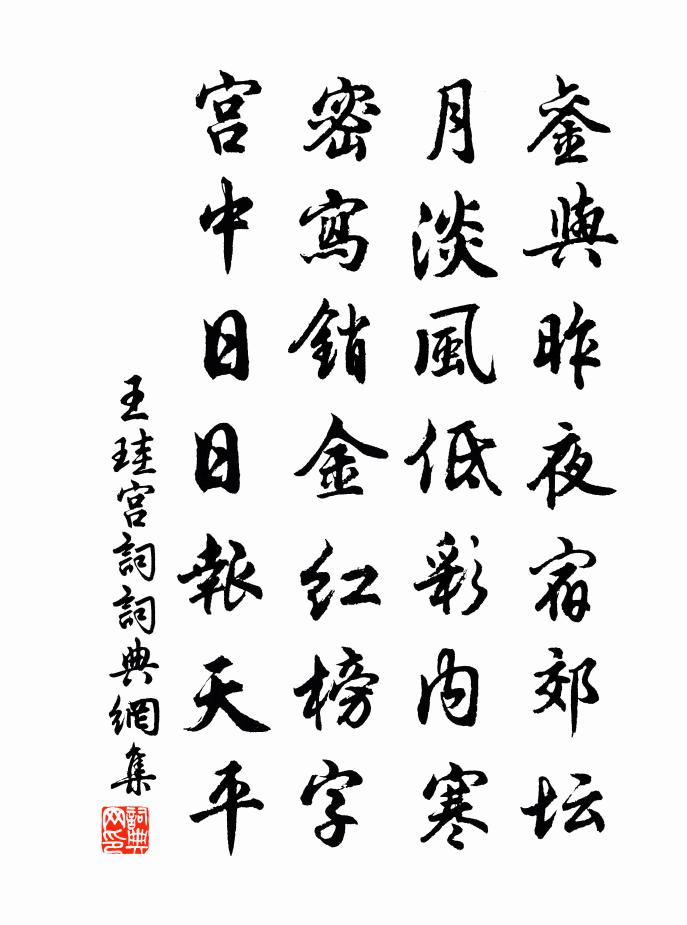 銮與昨夜宿郊坛
月淡風低彩内寒
密寫銷金红榜字
宫中日日報天平
王珪宫詞詞典網集
詞典网印